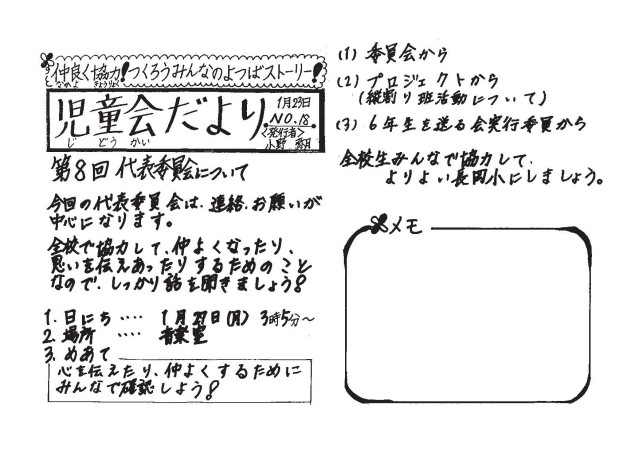 仲良く協力!つくろうみんなのよつばストーリー!
なかよ きょうりょく
児童会だより
じどうかい
1月23日
NO.18
<発行者>
小野
第8回代表委員会について
今回の代表委員会は、連絡、お願いが
中心になります。
全校で協力して、仲よくなったり、
思いを伝えあったりするためのこと
なので、しっかり話を聞きましょう!
1.日にち ‥‥ 1月27日(月) 3時5分~
2.場所 ‥‥ 音楽室
3.めあて
心を伝えたり、仲よくするために
みんなで確認しよう!
(1) 委員会から
(2) プロジェクトから
(縦割り班活動について)
(3) 6年生を送る会実行委員から
全校生みんなで協力して、
よりよい長岡小にしましょう。
メモ